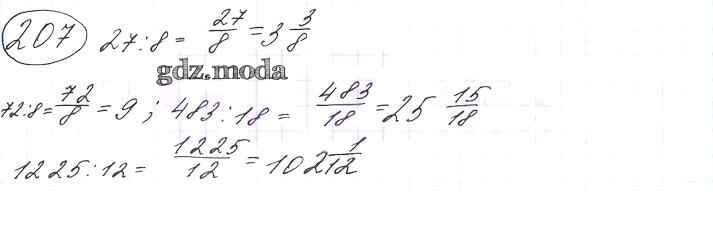 207 27:8 = 27/8 = 3 3/8
gdz.moda
72:8 = 72/8 = 9 ; 483:18 = 483/18 = 25 15/18
1225:12 = 1225/12 = 102 1/12